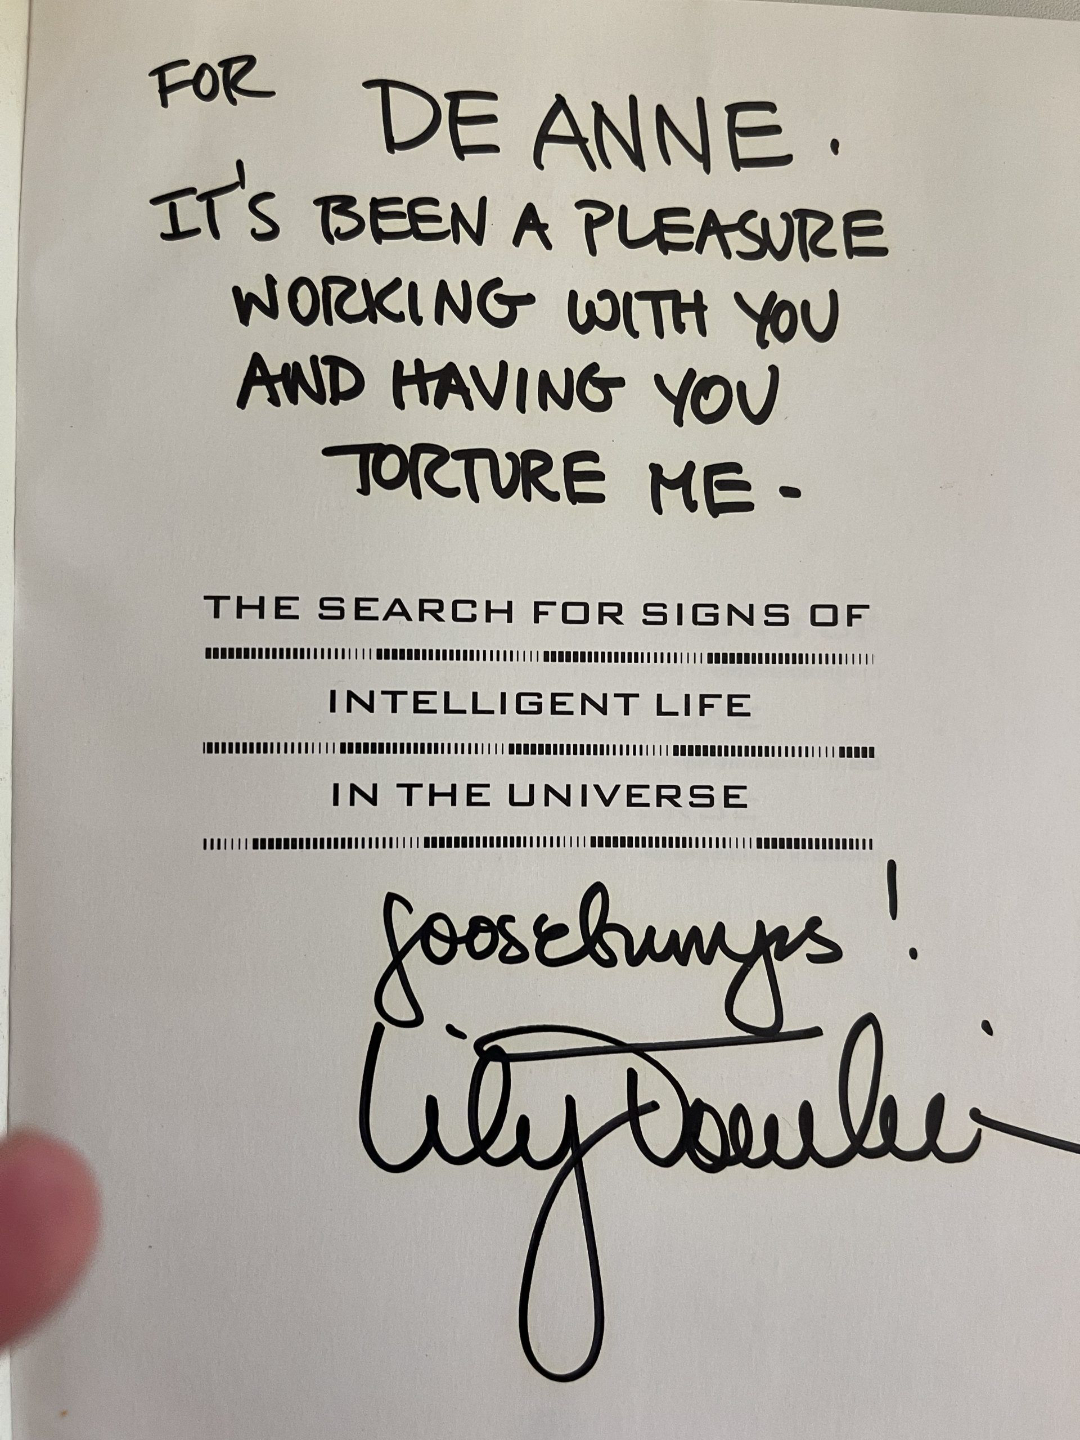 FOR DEANNE.
IT'S BEEN A PLEASURE
WORKING WITH YOU
AND HAVING YOU
TORTURE ME -
THE SEARCH FOR SIGNS OF
INTELLIGENT LIFE
IN THE UNIVERSE
goosebumps!
Lily Tomlin